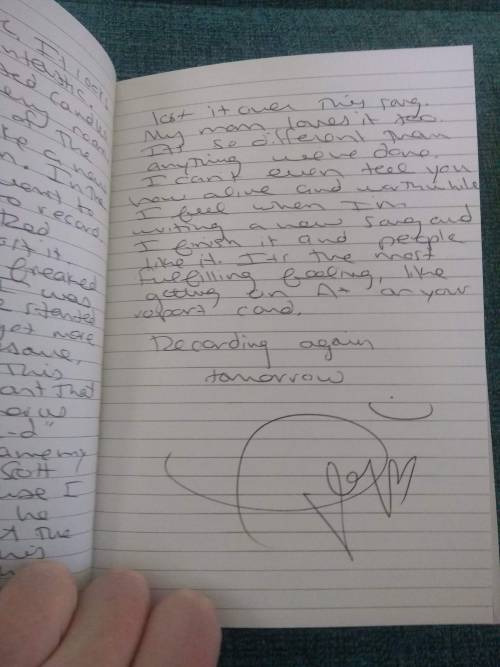 c. It locks
ted candles
ery room
of the
ke a new
n. In the
want to
to record.
Red
st it
freaked
I was
e started
get more
same,
This
ant that
"
Scott
use I
he
t the
his
lost it over this song.
My mom loves it too.
It's so different than
anything we've done.
I can't even tell you
how alive and worthwhile
I feel when I'm
writing a new song and
I finish it and people
like it. It's the most
fulfilling feeling, like
getting an A+ on your
report card.
Recording again
tomorrow